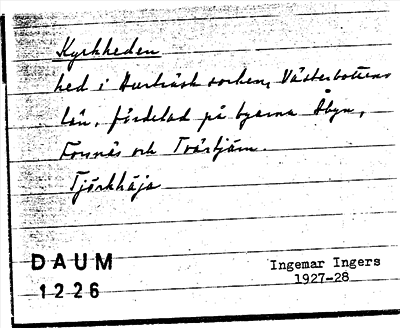 Kyrkheden
hed i Burträsk socken, Västerbottens
län, fördelad på byarna Åbyn,
Fornäs och Tvärtjärn.
Tjörkhäja
DAUM
1226
Ingemar Ingers
1927-28